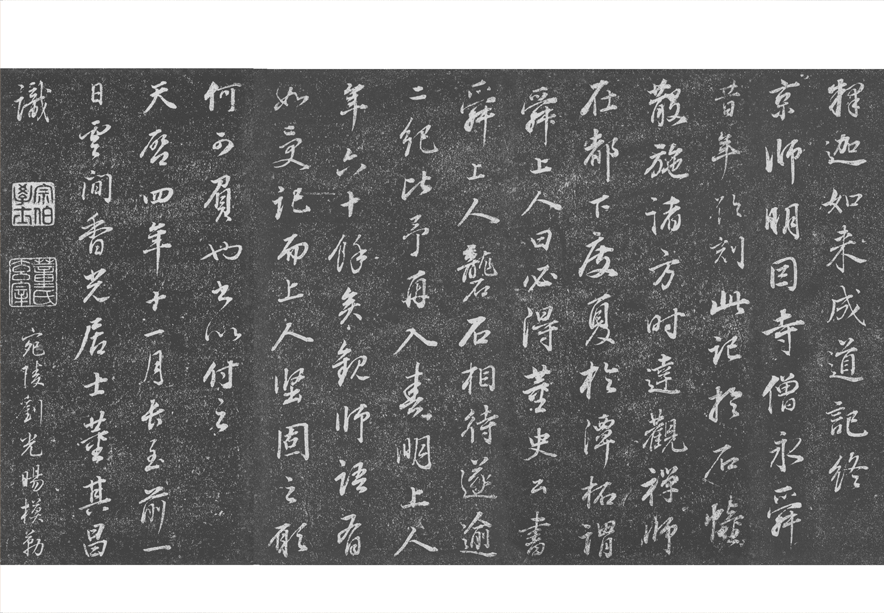 釋迦如来成道記終
京師明因寺僧永舜
昔年欲刻此記於石幢
散施諸方時達觀禅師
在都下度夏於潭柘謂
舜上人曰必得董史公書
舜上人礲石相待遂逾
二紀比予再入春明上人
年六十餘矣觀師語有
如受記而上人坚固之願
何可負也書以付之
天啓四年十一月長至前一
日雲间香光居士董其昌
識
宗伯學士
董氏玄宰
宛陵劉光暘模勒